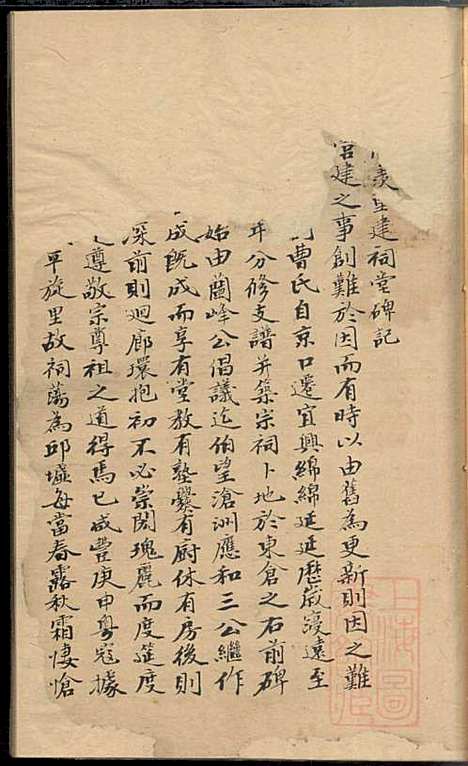 重建祠堂碑記
宮建之事創難於因而有時以由舊為更新則因之難
曹氏自京口遷宜興綿綿延延歷歲綬遠至
年分修支譜并築宗祠卜地於東倉之右前碑
始由蘭峰公倡議迄伯望滄洲應和三公繼作
成既成而享有堂教有塾爨有廚休有房後則
深前則迴廊環抱初不必崇閎瑰麗而度筵度
遵敬宗尊祖之道得焉已咸豐庚申粵寇據
卑旋里故祠蕩為邱墟每當春露秋霜悽愴
上海圖